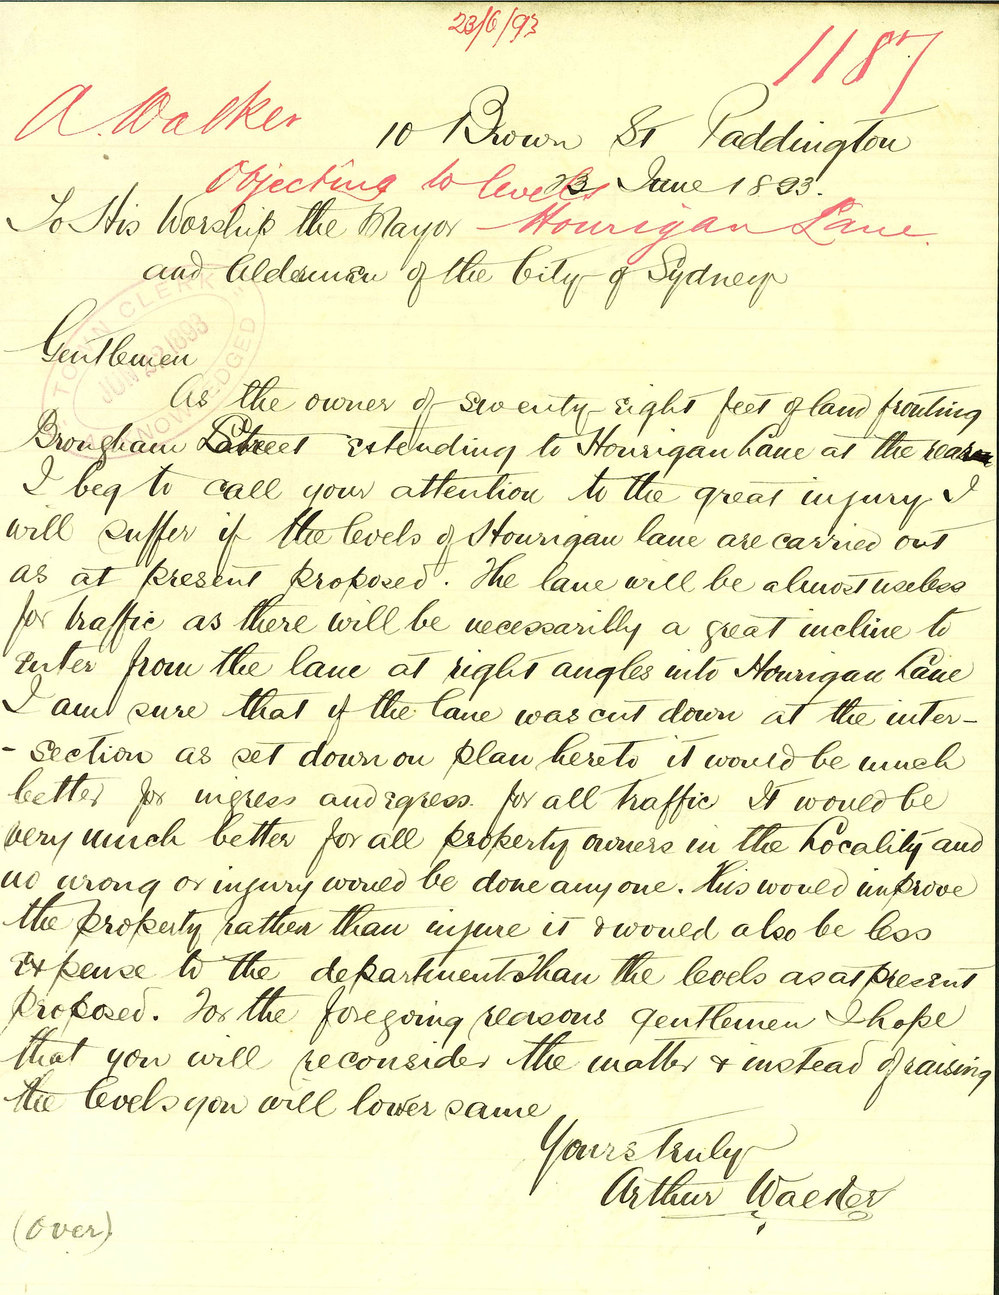 23/6/93
1187
A. Walker
10 Brown St Paddington
Objecting to levels
23 June 1893.
To His Worship the Mayor
Hourigan Lane.
and Aldermen of the City of Sydney
TOWN CLERK
JUN 23 1893
ACKNOWLEDGED
Gentlemen
As the owner of seventy-eight feet of land fronting
Brougham Street extending to Hourigan Lane at the rear
I beg to call your attention to the great injury I
will suffer if the levels of Hourigan lane are carried out
as at present proposed. The lane will be almost useless
for traffic as there will be necessarilly a great incline to
enter from the lane at right angles into Hourigan Lane
I am sure that if the lane was cut down at the inter-
-section as set down on plan hereto it would be much
better for ingress and egress for all traffic It would be
very much better for all property owners in the Locality and
no wrong or injury would be done anyone. This would improve
the property rather than injure it & would also be less
expense to the department than the levels as at present
proposed. For the foregoing reasons gentlemen I hope
that you will reconsider the matter & instead of raising
the levels you will lower same
Yours truly
Arthur Walker
(Over)